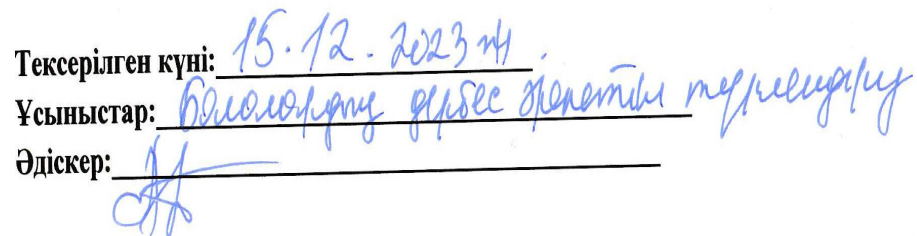 Тексерілген күні: 15.12.2023 ж.
Ұсыныстар: Балалардың дербес әрекетін түрлендіру
Әдіскер: